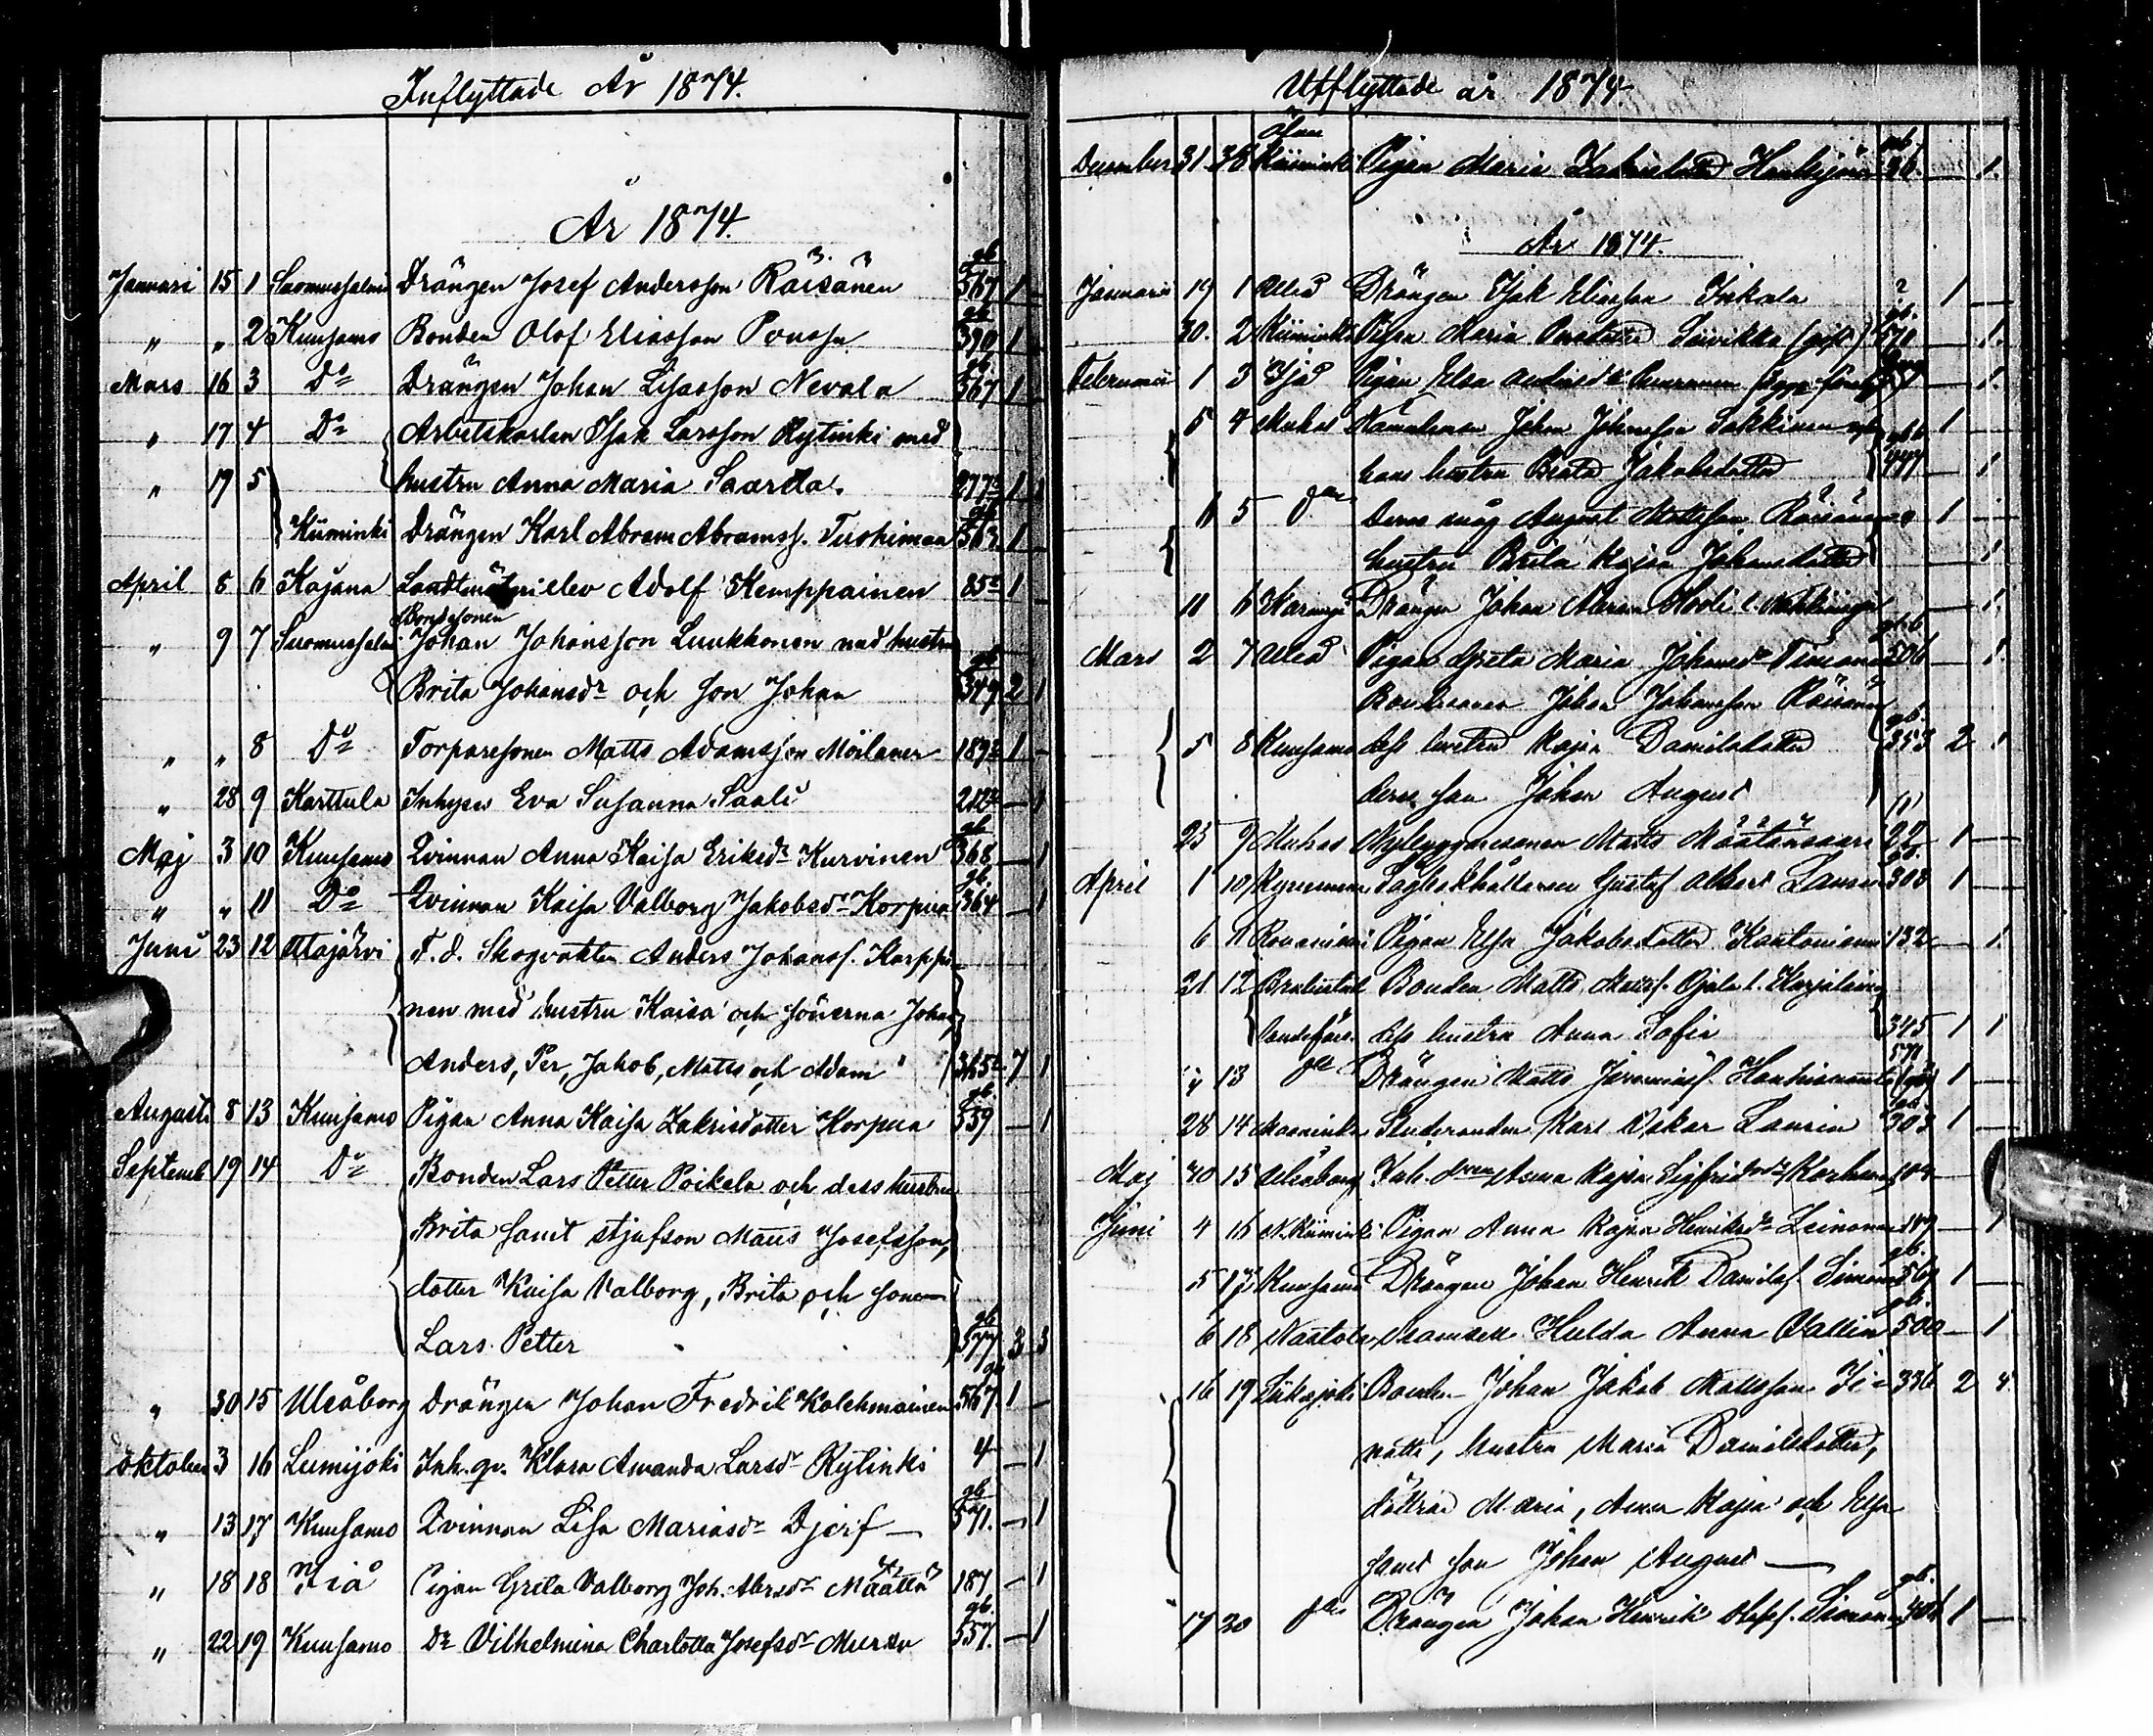 Inflyttade År 1874.
År 1874.
Januari 15 1 Suomussalmi Drängen Josef Andersson Räisänen gb 567 1 –
" " 2 Kuusamo Bonden Olof Eliasson Poussu gb 390 1
Mars 16 3 Do Drängen Johan Lisasson Nevala gb 567 1
" 17 4 Do Arbetskarlen Isak Larsson Rytinki med
" 19 5 hustru Anna Maria Saarela. 277 1 1
Kiiminki Drängen Karl Abram Abramss. Tuohimaa gb 563 1 –
April 8 6 Kajana Landtmäteri elev Adolf Kemppainen 85 1
" 9 7 Suomussalmi Bondesonen Johan Johansson Luukkonen med hustru
Brita Johansdr och son Johan gb 349 2 1
" " 8 Do Torparesonen Matts Adamsson Moilanen 189 1 –
" 28 9 Karttula Inhyses Eva Susanna Saali 212 – 1
Maj 3 10 Kuusamo Qvinnan Anna Kaisa Eriksdr Kurvinen gb 368 – 1
" " 11 Do Qvinnan Kaisa Valborg Jakobsdr Korpua gb. 364 – 1
Juni 23 12 Utajärvi F. d. Skogvakten Anders Johanss. Karppi-
nen med hustru Kaisa och sönerna Johan,
Anders, Per, Jakob, Matts och Adam 365 7 1
Augusti 8 13 Kuusamo Pigan Anna Kaisa Zakrisdotter Korpua gb. 559 – 1
Septemb 19 14 Do Bonden Lars Petter Poikela och dess hustru
Brita samt stjufson Matts Josefsson,
dotter Kaisa Valborg, Brita och sonen
Lars Petter gb 577 3 3
" 30 15 Uleåborg Drängen Johan Fredrik Kolehmainen gb 567. 1 –
Oktober 3 16 Lumijoki Inh. qv. Klara Amanda Larsdr Rytinki 4 – 1
" 13 17 Kuusamo Qvinnan Lisa Mariasdr Djerf — gb 571. – 1
" 18 18 Pigan Greta Valborg Joh. Abrsdr Määttä 187 – 1
" 22 19 Kuusamo Do Vilhelmina Charlotta Josefsdr Murto gb. 557. – 1
Utflyttade år 1874.
December 31. 38 Kiiminki Pigan Maria 36. — 1.
År 1874.
Januari 19 1 Uleå Drängen Isak Eliasson Inkala ? 1 —
30. 2 Kiiminki Pigan Maria (gift) gb. 570 — 1.
Februari 1 3 Pigan Elsa — 1.
5 4 Muhos Johan Johansson Sakkinen 1 —
hans hustru Beata Jakobsdotter — 1
11 5 Do Deras måg August Mattsson Räisänen 1 —
hustru Brita Kajsa Johansdotter — 1
11 6 Drängen Johan Abram — 1.
Mars 2 7 Uleå Pigan Greta Maria Johansdr gb 506 — 1.
Bondesonen Johan Johansson Räisänen
5 8 Kuusamo dess hustru Kajsa Danielsdotter gb. 353 2 1
deras son Johan August
25 9 Muhos Nybyggaresonen Matts 22 1 —
April 1 10 Gustaf Albert Laurin 303 1 —
6 11 Rovaniemi Pigan Elsa Jakobsdotter Kantoniemi 132 — 1.
21 12 Brahestad Bonden Matts Matss. Ojala l. Karjalainen
landsförs. dess hustru Anna Sofia 345 1 1
" 13 Do Drängen Matts 571 1 —
28 14 Maaninka Studeranden Karl Oskar Laurin 303 1 —
Maj 30 15 Uleåborg Inh. Anna Kajsa Sigfridsdr Korhonen 109 —
Juni 4 16 N. Kiiminki Pigan Anna Kajsa Henriksdr Leinonen 187 — 1
5 17 Kuusamo Drängen Johan Henrik Danielss. Simonen gb. 567 1 —
6 18 Mamsell Hulda Anna Vallin gb. 500 — 1
16 19 Siikajoki Bonden Johan Jakob Mattsson 336 2 4
hustru Maria Danielsdotter,
döttrar Maria, Anna Kajsa och Elsa
samt son Johan August —
17 20 Do Drängen Johan Henrik Simonen gb. 1 —